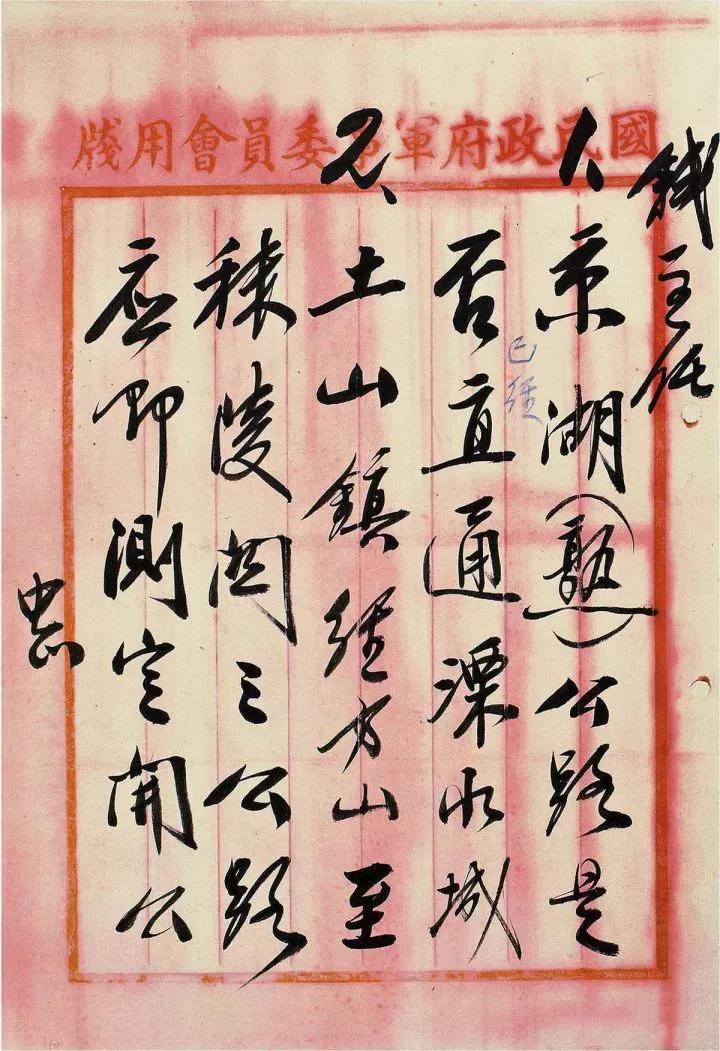 國民政府軍事委員會用牋
錢主任
1、京湖(熟)公路是
否已經直通溧水城
2、土山鎮經方山至
秣陵関之公路
應即測定開公
中正